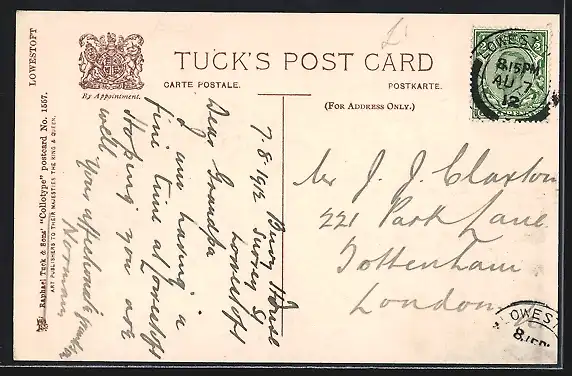 LOWESTOFT
By Appointment.
TUCK'S POST CARD
CARTE POSTALE.
POSTKARTE.
(FOR ADDRESS ONLY.)
Raphael Tuck & Sons' "Collotype" postcard No. 1557.
ART PUBLISHERS TO THEIR MAJESTIES THE KING & QUEEN.
LOWEST
8.15PM
AU 7
12
Bury House
Surrey St
Lowestoft
7.8.1912
Dear Grandpa
I am having a
fine time at Lowestoft
Hoping you are
well
Your affectionate
Norman
Mr J. J. Claxton
221 Park Lane
Tottenham
London
OWEST
8.15PM